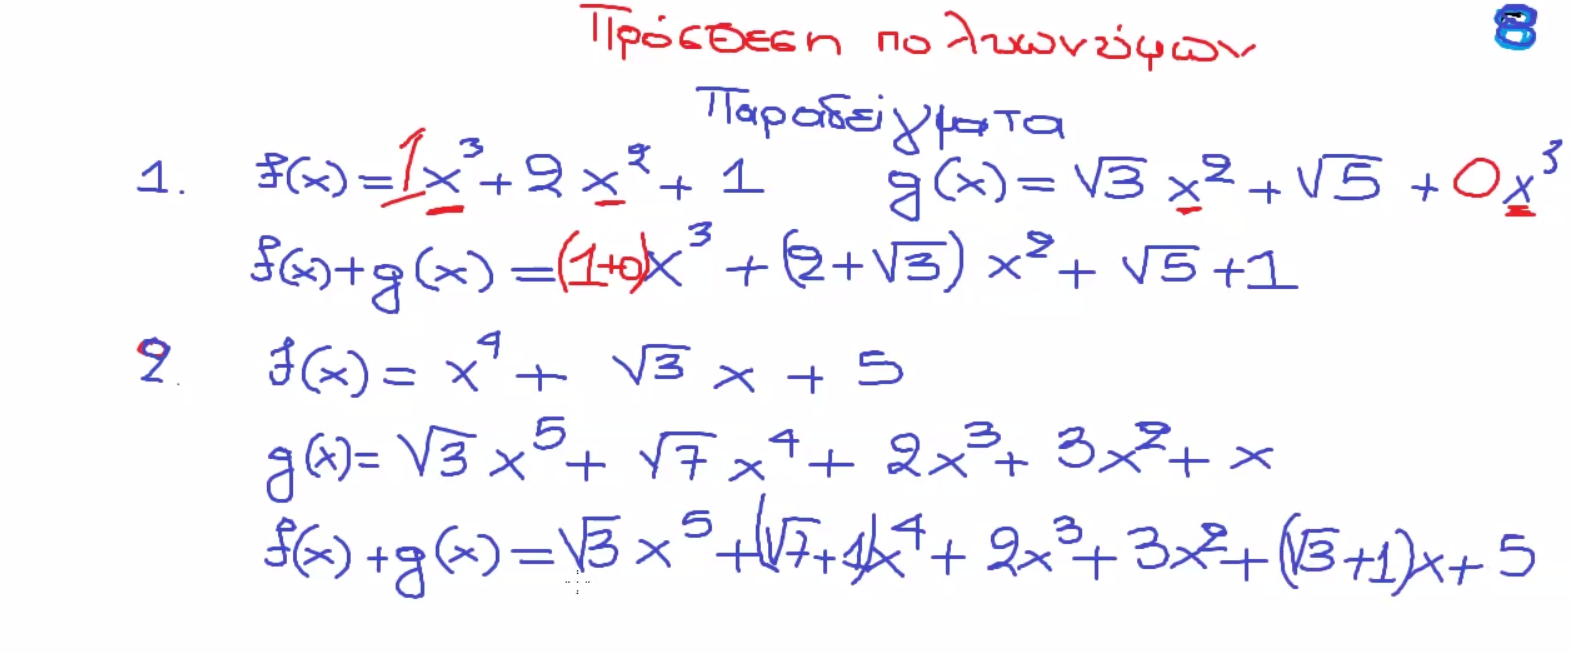 Πρόσθεση πολυωνύμων 8
Παραδείγματα
1. f(x)=1x³+2x²+1 g(x)=√3x²+√5+0x³
f(x)+g(x)=(1+0)x³+(2+√3)x²+√5+1
2. f(x)=x⁴+√3x+5
g(x)=√3x⁵+√7x⁴+2x³+3x²+x
f(x)+g(x)=√3x⁵+(√7+1)x⁴+2x³+3x²+(√3+1)x+5